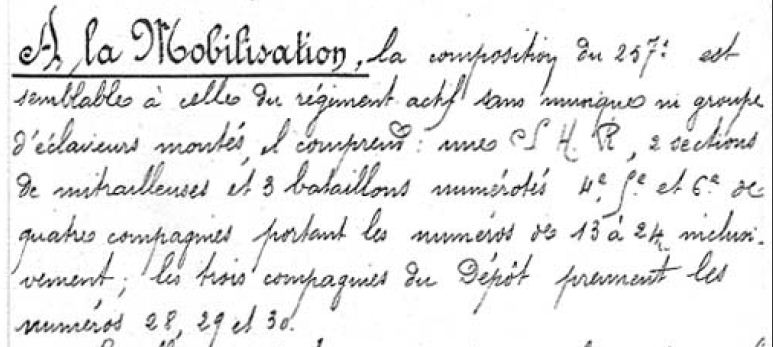 A la Mobilisation, la composition du 257e est
semblable à celle du régiment actif sans musique ni groupe
d'éclaireurs montés, il comprend : une S H R, 2 sections
de mitrailleuses et 3 bataillons numérotés 4e, 5e et 6e de
quatre compagnies portant les numéros de 13 à 24 inclusi-
vement ; les trois compagnies du Dépôt prennent les
numéros 28, 29 et 30.